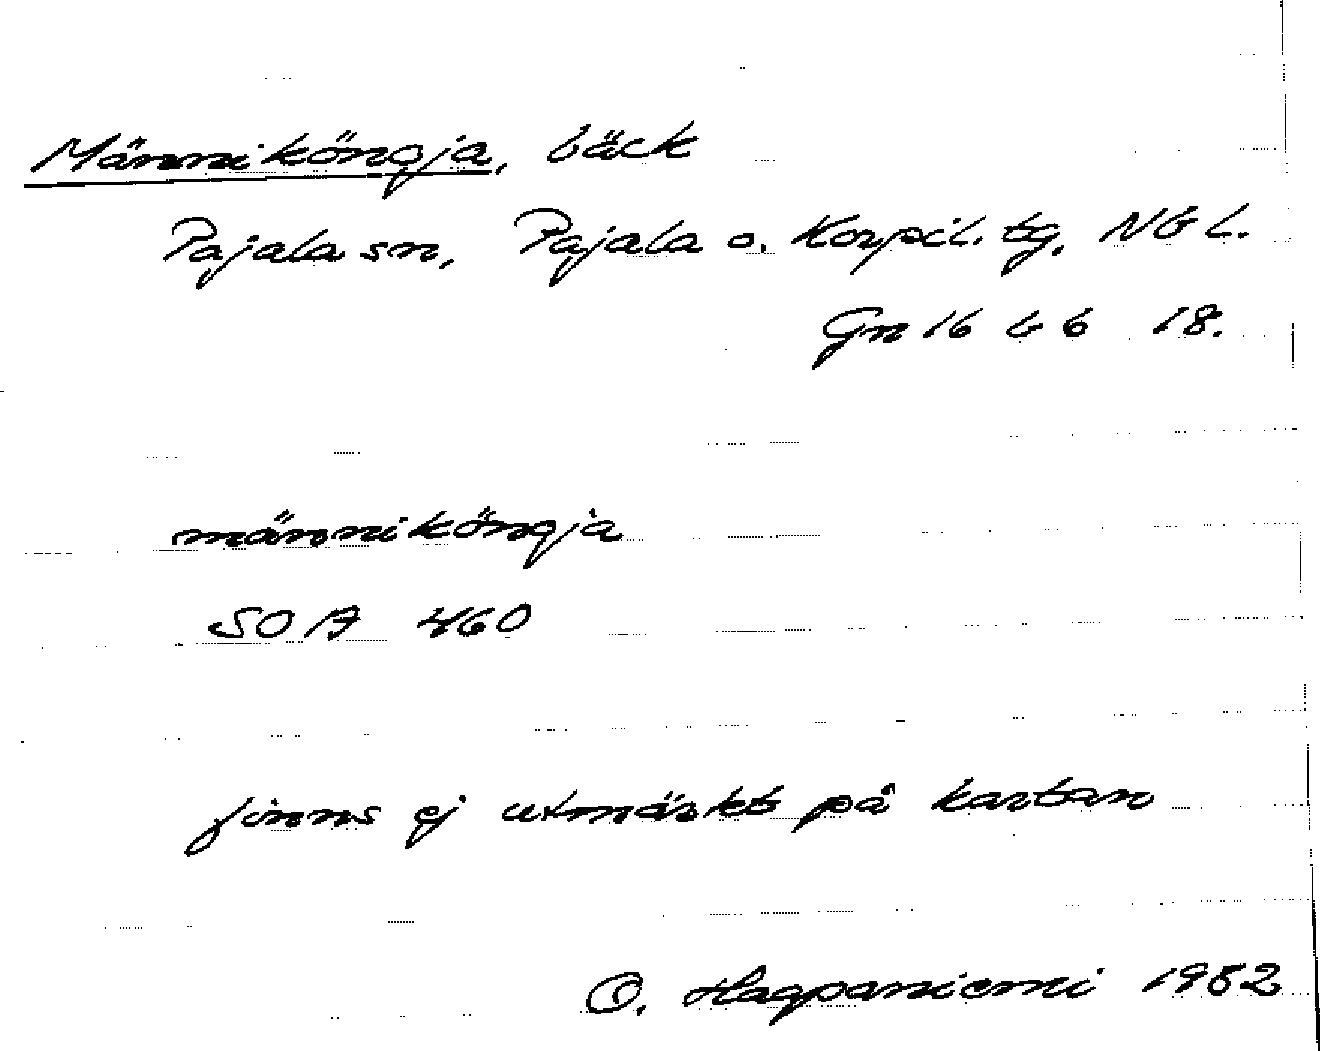 Männiköngja, bäck
Pajala sn, Pajala o. Korpil. tg, NB L.
Gn 16 b 6 18.
männiköngja
SOA 460
finns ej utmärkt på kartan
O. Haapaniemi 1982